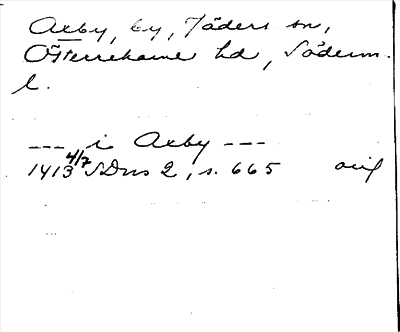 Axby, by, Jäders sn,
Österrekarne hd, Söderm.
l.
--- i Axby ---
1413 4/7 SDns 2, s. 665 orig